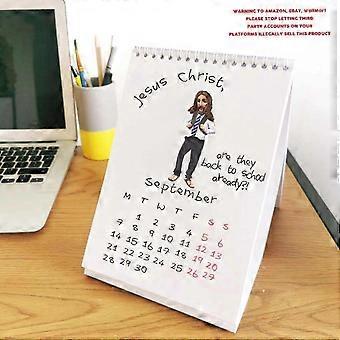 WARNING TO AMAZON, EBAY, WalMart
PLEASE STOP LETTING THIRD
PARTY ACCOUNTS ON YOUR
PLATFORMS ILLEGALLY SELL THIS PRODUCT
Jesus Christ,
are they
back to school
already?!
September
M T W T F S S
1 2 3 4 5 6
7 8 9 10 11 12 13
14 15 16 17 18 19 20
21 22 23 24 25 26 27
28 29 30